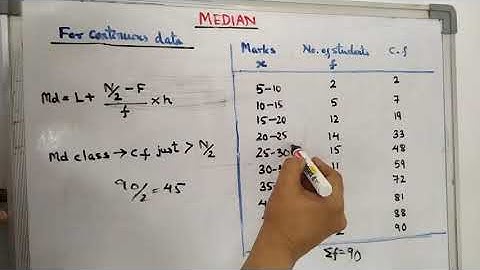 MEDIAN
For continuous data
Md = L + N/2 - F / f × h
Md class → Cf just > N/2
90/2 = 45
Marks x No. of students f C.f
5-10 2 2
10-15 5 7
15-20 12 19
20-25 14 33
25-30 15 48
30- 11 59
35- 72
4 81
88
2 90
Σf = 90